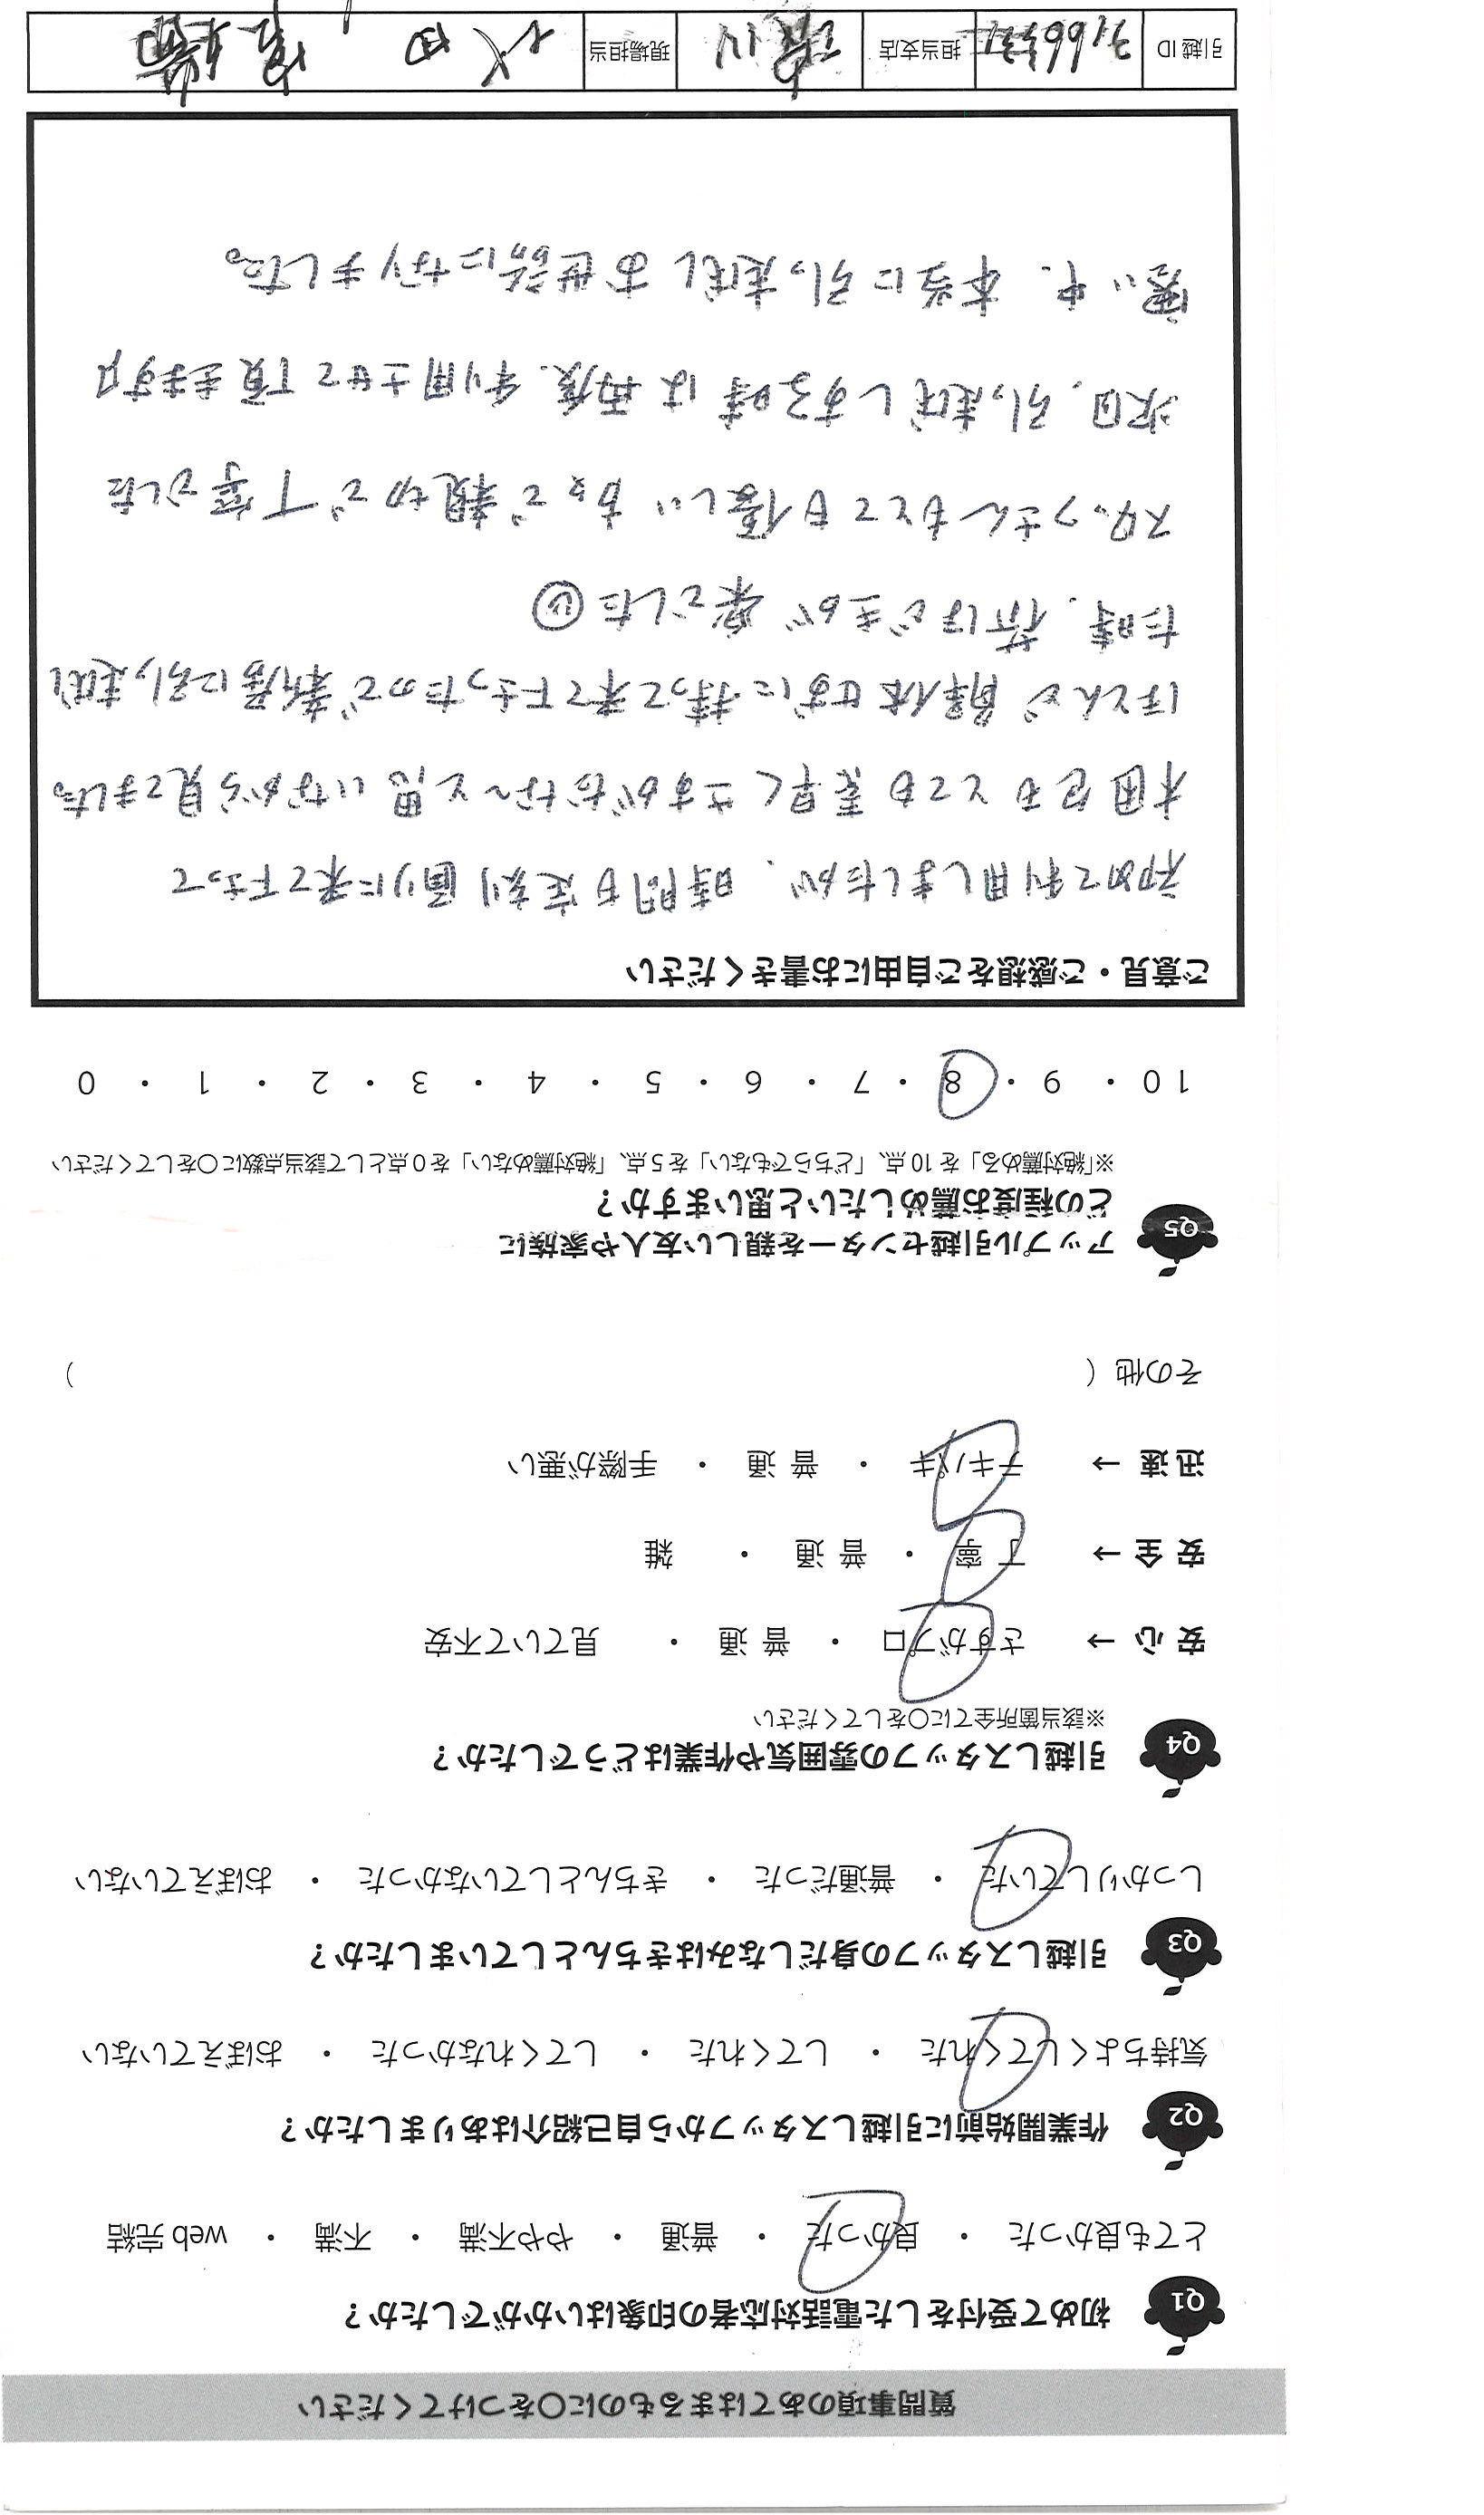 質問事項のあてはまるものに〇をつけてください
Q1 初めて受付をした電話対応者の印象はいかがでしたか？
とても良かった ・ 良かった ・ 普通 ・ やや不満 ・ 不満 ・ web 完結
Q2 作業開始前に引越しスタッフから自己紹介はありましたか？
気持ちよくしてくれた ・ してくれた ・ してくれなかった ・ おぼえていない
Q3 引越しスタッフの身だしなみはきちんとしていましたか？
しっかりしていた ・ 普通だった ・ きちんとしていなかった ・ おぼえていない
Q4 引越しスタッフの雰囲気や作業はどうでしたか？
※該当箇所全てに〇をしてください
安心 → さすがプロ ・ 普通 ・ 見ていて不安
安全 → 丁寧 ・ 普通 ・ 雑
迅速 → テキパキ ・ 普通 ・ 手際が悪い
その他（ ）
Q5 アップル引越センターを親しい友人や家族に
どの程度お薦めしたいと思いますか？
※「絶対薦める」を10点、「どちらでもない」を5点、「絶対薦めない」を0点として該当点数に〇をしてください
10 ・ 9 ・ 8 ・ 7 ・ 6 ・ 5 ・ 4 ・ 3 ・ 2 ・ 1 ・ 0
ご意見・ご感想をご自由にお書きください
初めて利用しましたが、時間も定刻通りに来て下さって
梱包もとても素早くさすがだな〜と思いながら見てました。
ほとんど解体せずに持って来て下さったので新居に引っ越し
た時、荷ほどきが楽でした
スタッフさんもとても優しい方々で親切で丁寧でした
次回、引っ越しする時は再度、利用させて頂きます
寒い中、本当に引っ越しお世話になりました。
引越ID 担当支店 現場担当